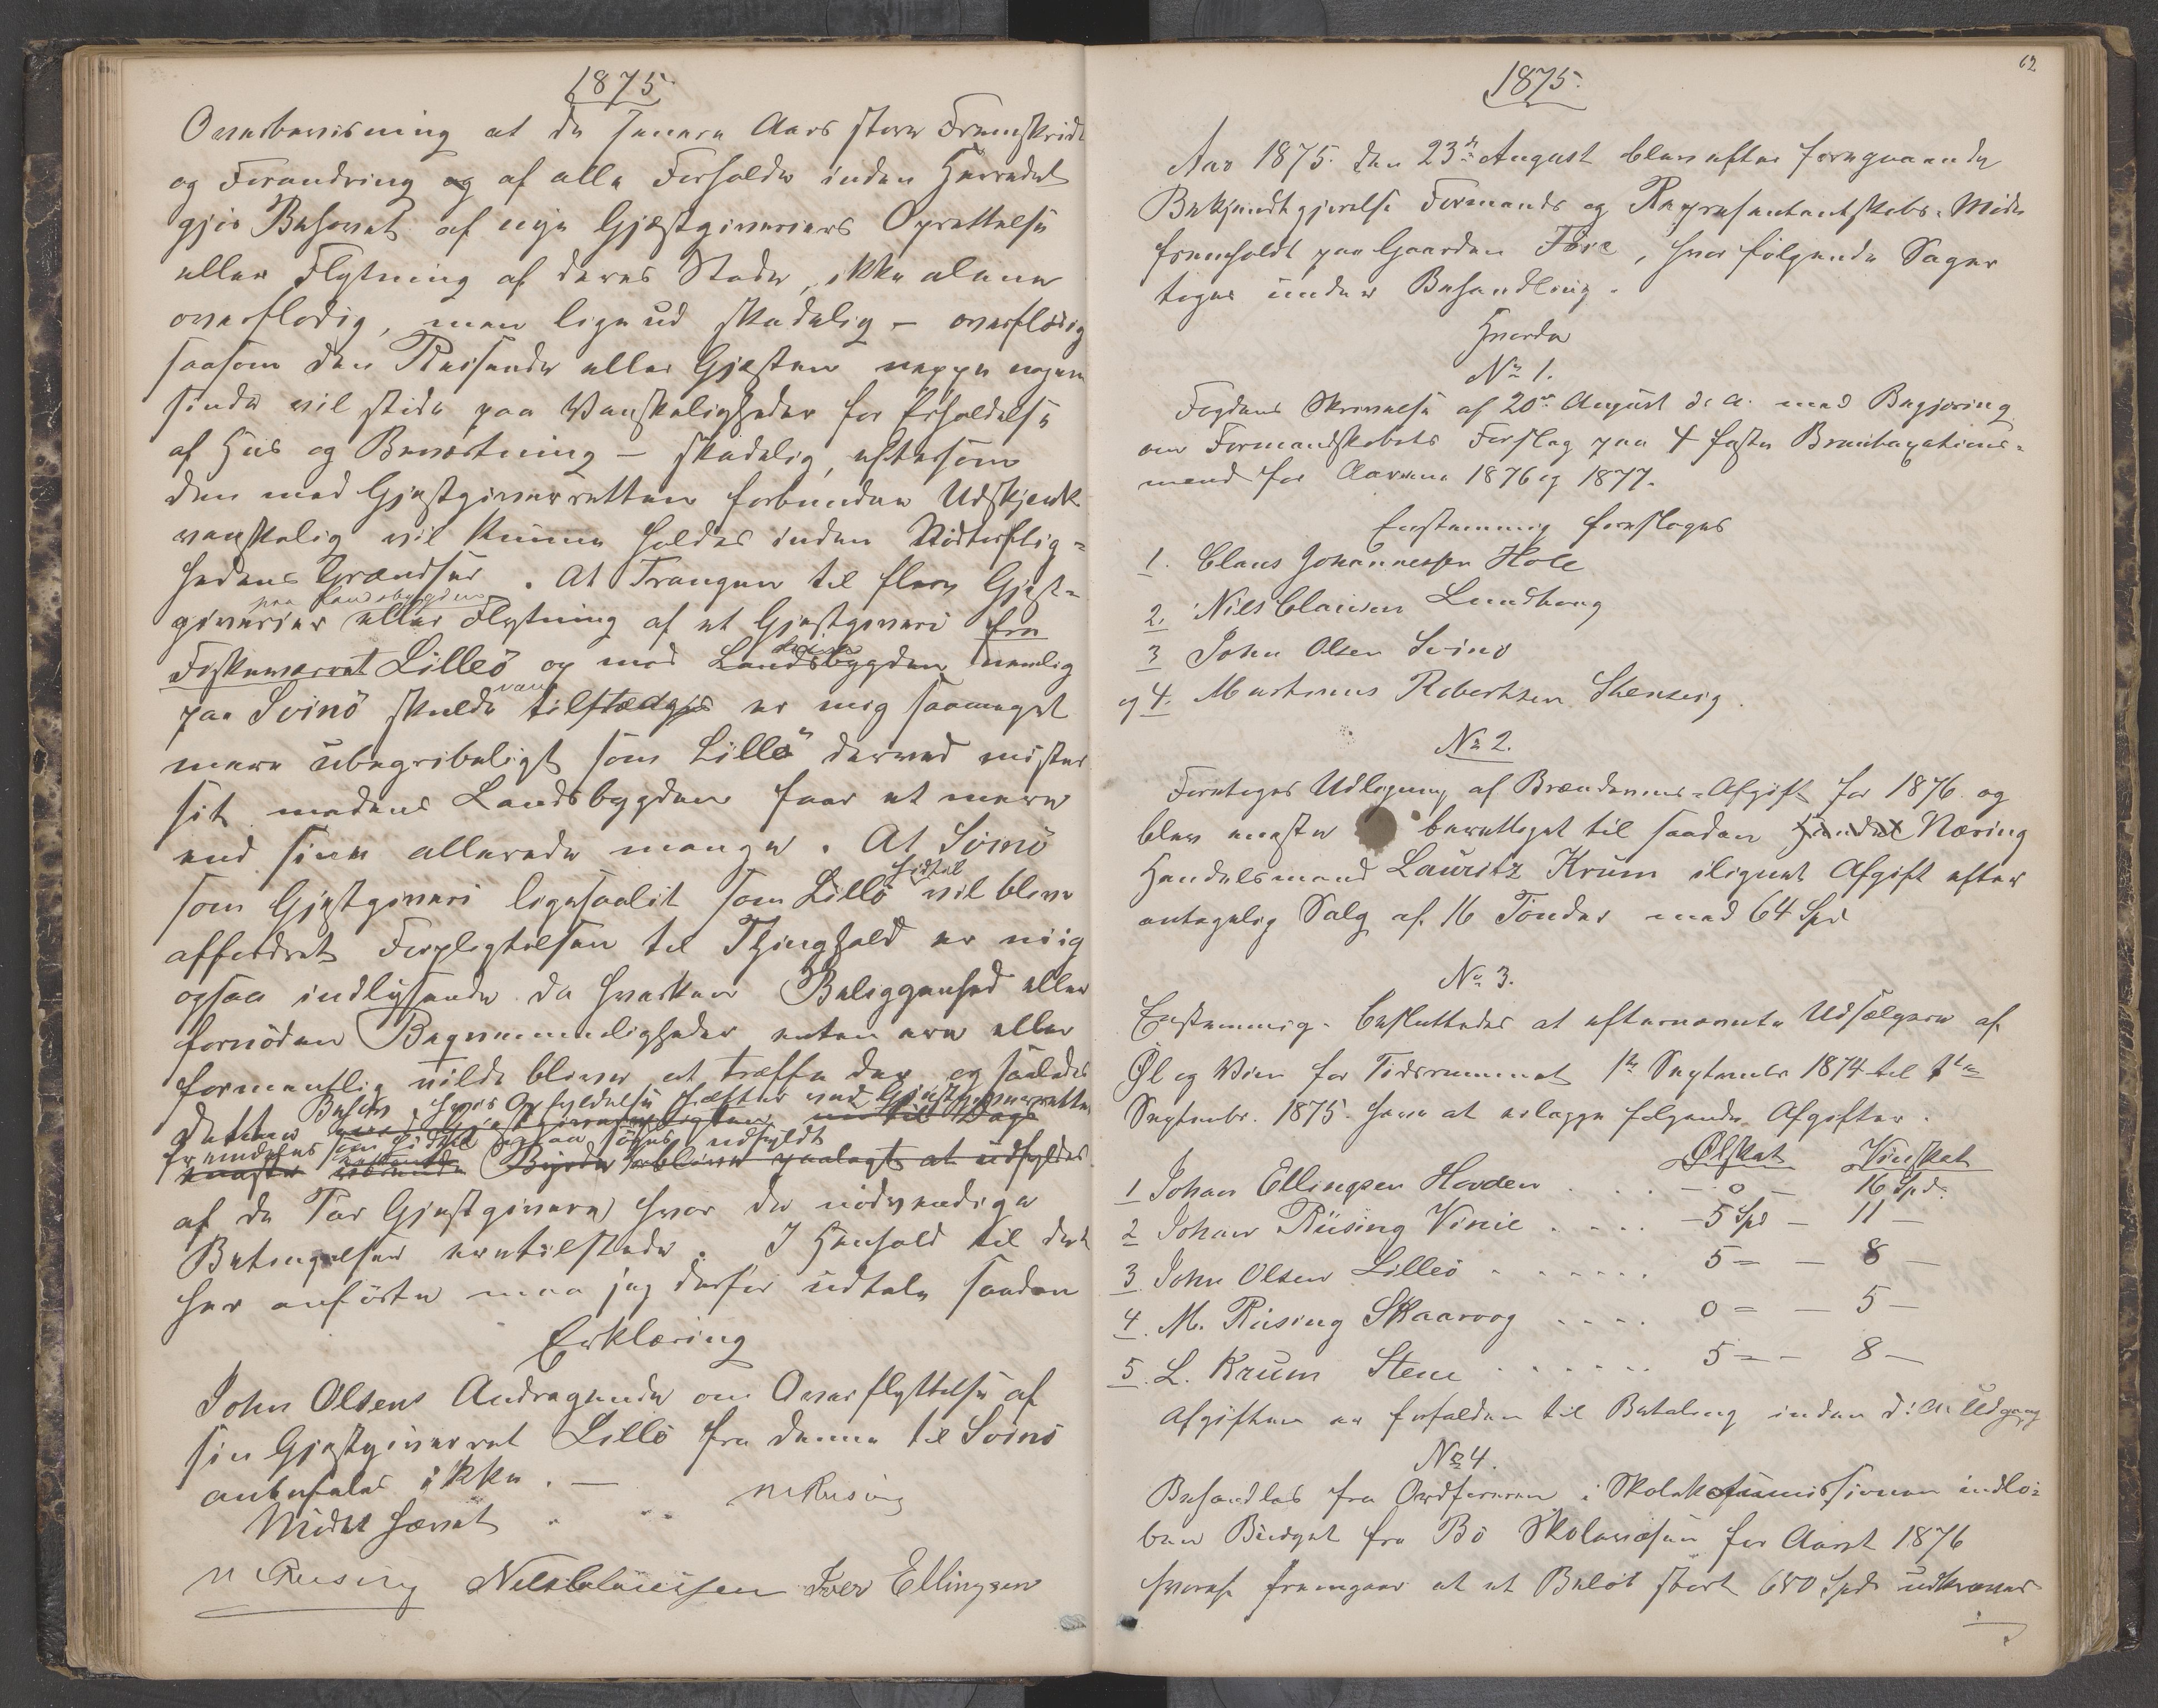 1875
Overbevisning at de senere Aars store Fremskridt
og Forandring og af alle Forholde inden Herredet
gjør Behovet af nye Gjæstgiveriers Oprettelse
eller Flytning af deres Steder, ikke alene
overflødig, men ligeud skadelig – overflødig
saasom den Reisende eller Gjæsten neppe nogen
sinde vil støde paa Vanskeligheder for Erholdelse
af Huus og Beværtning – skadelig, eftersom
den med Gjæstgiverretten forbundne Udskjenk
vanskelig vil kunne holdes inden Nødtørftig=
hedens Grændser. At Trangen til flere Gjæst=
paa Landsbygden
giverier eller Flytning af et Gjæstgiveri fra
Fiskeværet Lilleö op mod Landsbygden nemlig
paa Svinö skulde tilstædes er mig saameget
være
mere ubegribeligt som Lilleö derved mister
sit medens Landsbygden faar et mere
end sine allerede mange. At Svinö
som Gjæstgiveri ligesaalit som Lilleö hidtil vil blive
affordret Forpligtelsen til Thinghold er mig
ogsaa indlysende da hverken Beliggenhed eller
fornöden Beqvemmeligheder enten ere eller
formentlig vilde blive at træffe der og saaledes
dette Behov, hvis Opfyldelse hæfter ved Gjæstgiverretten
fremdeles som hidtil ogsaa søges udfyldt
Byrde blive paalagt at udfyldes
af de Par Gjæstgivere, hvor de nödvendige
Betingelser ere tilstede. I Henhold til det
her anförte maa jeg derfor udtale saadan
Erklæring
John Olsens Andragende om Overflyttelse af
sin Gjæstgiverret Lilleö fra denne til Svinö
anbefales ikke. –
M Rüsing
Mödet hævet
M Rüsing Nils Claussen Iver Ellingsen
62
1875.
Aar 1875 den 23de August blev efter foregaaende
Bekjendtgjørelse Formands og Repræsentantskabs-Møde
fremholdt paa Gaarden Føre, hvor følgende Sager
toges under Behandling.
Hvorda
No 1.
Fogdens Skrivelse af 20de August d. A. med Begjæring
om Formandskabets Forslag paa 4 faste Brandtaxations=
mænd for Aarene 1876 og 1877.
Enstemmig foresloges
1. Claus Johannessen Hole
2. Nils Clausen Lundborg
3 John Olsen Svinö
og 4. Martinus Robertsen Steensvig.
No 2.
Foretoges Udligning af Brændevins-Afgift for 1876 og
blev eneste berettiget til saadan Handel Næring
Handelsmand Lauritz Krüm ilignet Afgift efter
antagelig Salg af 16 Tönder med 64 Spd
No 3.
Enstemmig besluttedes at efternævnte Udsælgere af
Øl og Vin for Tidsrummet 1ste September 1874 til 1ste
Septembr. 1875 have at erlægge følgende Afgifter.
Ølskat Vinskat
1 Johan Ellingsen Hovden . . . – 0 – 16 Spd.
2 Johan Rüsing Vinie . . . . – 5 Spd – 11 –
3 John Olsen Lilleö . . . . . . 5 – – 8 –
4. M. Rüsing Skaarvog . . . . 0 – – 5 –
5. L. Krüm Stene . . . . . . 5 – – 8 –
Afgiften er forfalden til Betaling inden d: A: Udgang
No 4.
Behandles fra Ordføreren i Skolekommissionen indlø=
ben Budget for Bö Skolevæsen for Aaret 1876
hvoraf fremgaar at et Beløb stort 680 Spd. udkræves